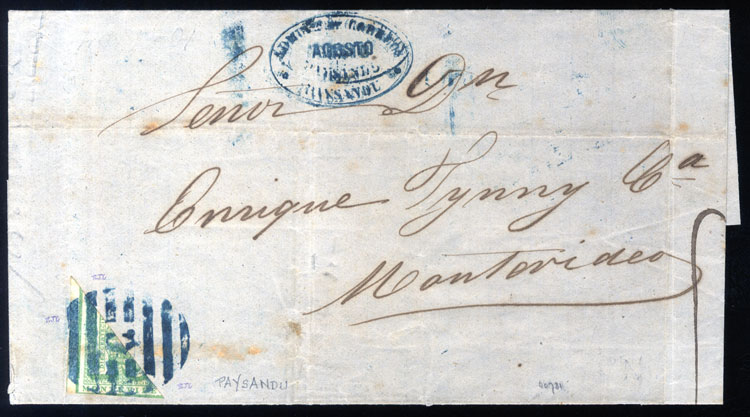 ADMINON DE CORREOS
AGOSTO
PAISANDU
Señor Dn
Enrique Tynny Ca
Montevideo
PAYSANDU